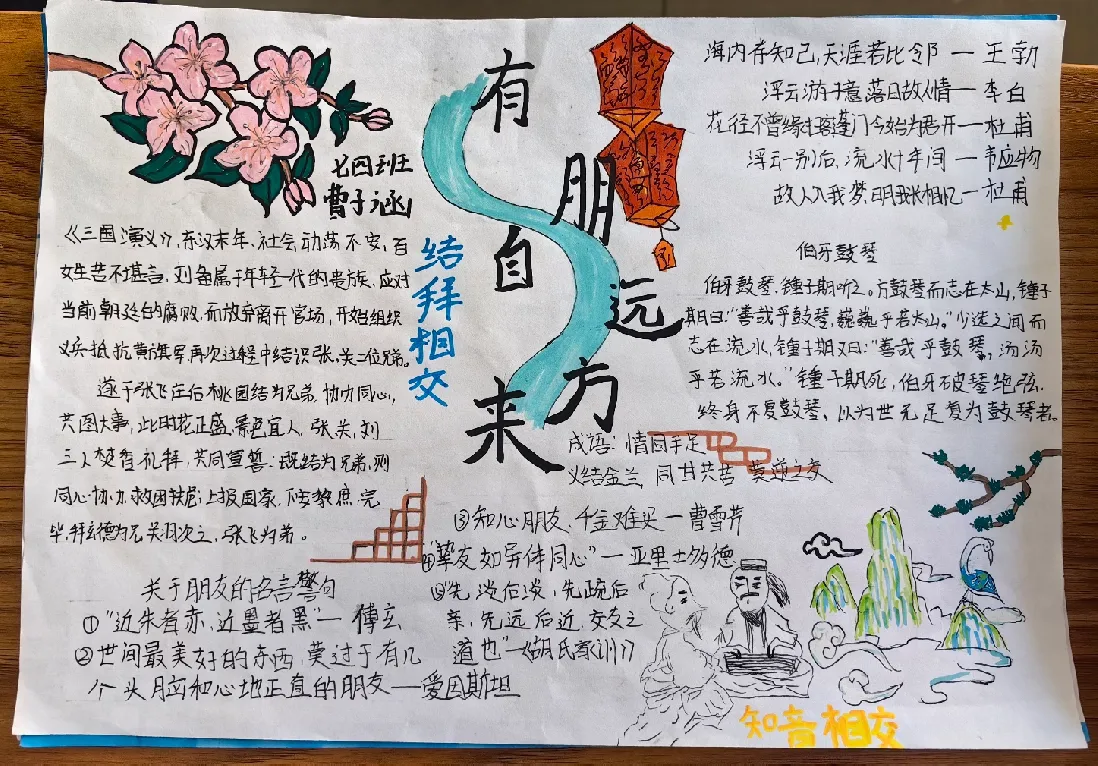 有朋自远方来
七四班
曹子涵
结拜相交
《三国演义》，东汉末年，社会动荡不安，百
姓生苦不堪言，刘备属于年轻一代的贵族，应对
当前朝廷的腐败，而放弃离开官场，开始组织
义兵抵抗黄旗军再次过程中结识张，关二位兄弟。
遂于张飞庄后桃园结为兄弟，协力同心，
共图大事，此时花正盛，景色宜人，张关，刘
三人焚香礼拜，共同宣誓：既结为兄弟，则
同心协力，救困扶危；上报国家，下安黎庶，完
毕，拜玄德为兄，关羽次之，张飞为弟。
关于朋友的名言警句
①“近朱者赤，近墨者黑”— 傅玄
②世间最美好的东西，莫过于有几
个头脑和心地正直的朋友——爱因斯坦
③知心朋友，千金难买—曹雪芹
④“挚友如异体同心”—亚里士多德
先淡后浓，先疏后
亲，先远后近，交友之
道也”—《胡氏家训》
海内存知己，天涯若比邻 — 王勃
浮云游子意落日故人情—李白
花径不曾缘客扫蓬门今始为君开—杜甫
浮云一别后，流水十年间 — 韦应物
故人入我梦，明我长相忆—杜甫
伯牙鼓琴
伯牙鼓琴，锺子期听之。方鼓琴而志在太山，锺子
期曰：“善哉乎鼓琴，巍巍乎若太山。”少选之间而
志在流水，锺子期又曰：“善哉乎鼓琴，汤汤
乎若流水。”锺子期死，伯牙破琴绝弦，
终身不复鼓琴，以为世无足复为鼓琴者。
成语：情同手足
义结金兰，同甘共苦 莫逆之交
知音相交